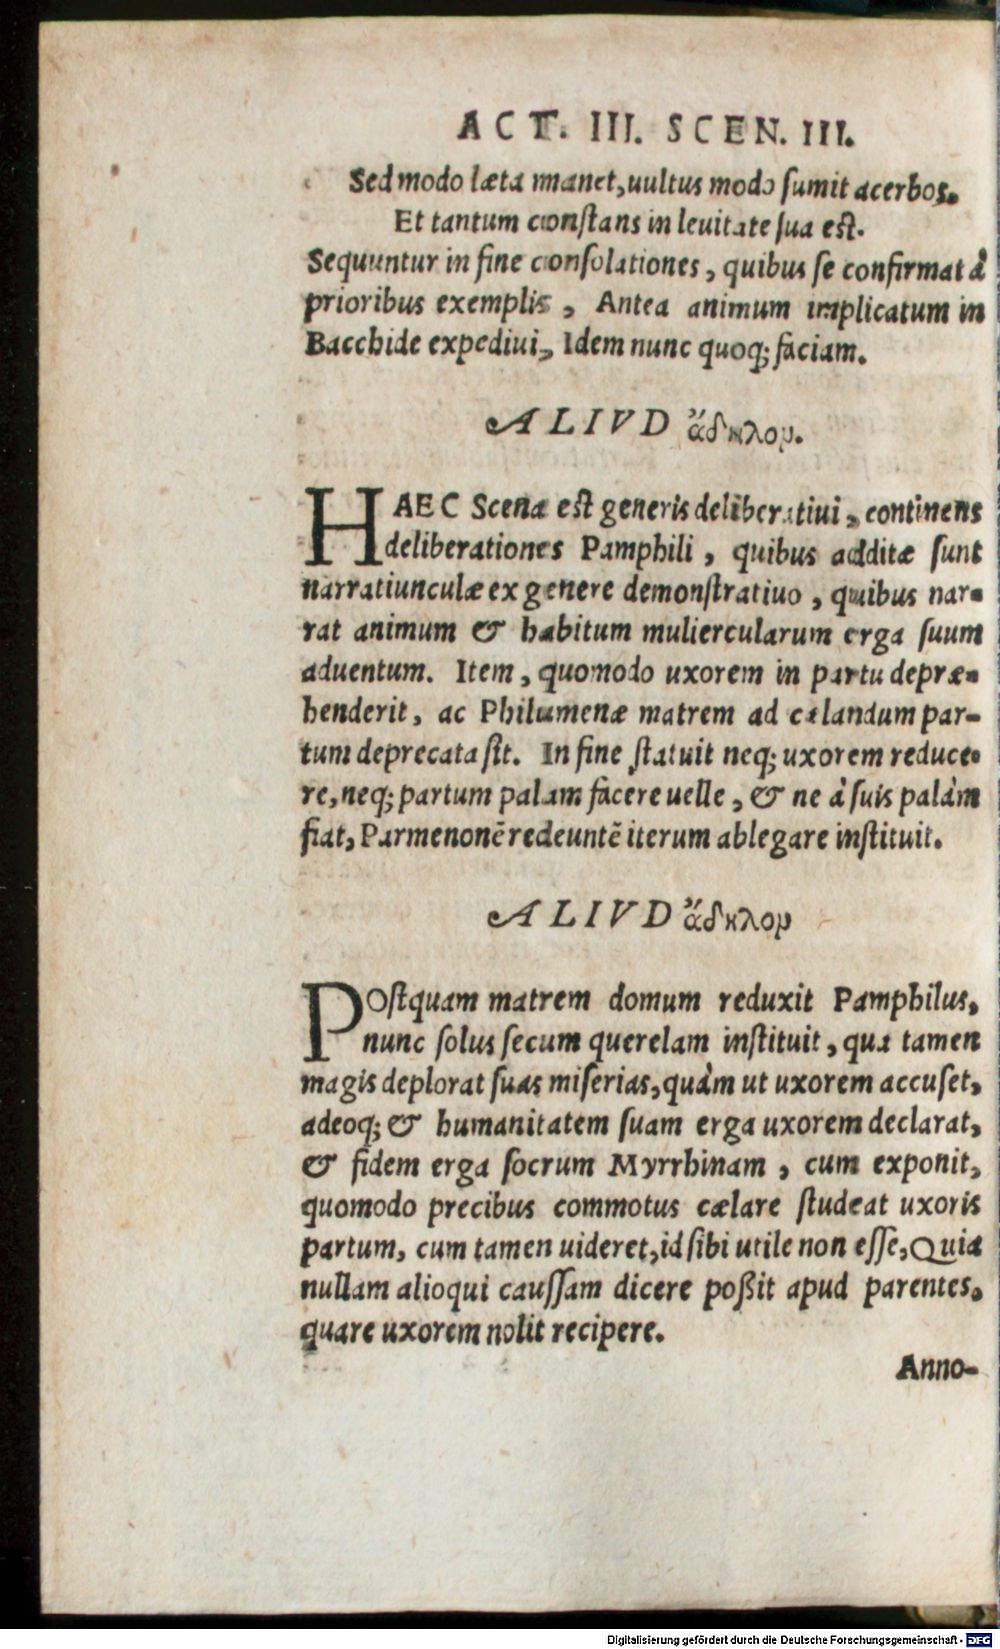 ACT. III. SCEN. III.
Sed modo læta manet, uultus modo ſumit acerbos.
Et tantum conſtans in leuitate ſua eſt.
Sequuntur in fine conſolationes, quibus ſe confirmat à
prioribus exemplis, Antea animum implicatum in
Bacchide expediui, Idem nunc quoq; faciam.
ALIVD ἄδηλον.
HAEC Scena eſt generis deliberatiui, continens
deliberationes Pamphili, quibus additæ ſunt
narratiunculæ ex genere demonſtratiuo, quibus nar-
rat animum & habitum muliercularum erga ſuum
aduentum. Item, quomodo uxorem in partu depræ-
henderit, ac Philumenæ matrem ad cælandum par-
tum deprecata ſit. In fine ſtatuit neq; uxorem reduce-
re, neq; partum palam facere uelle, & ne à ſuis palàm
fiat, Parmenonē redeuntē iterum ablegare inſtituit.
ALIVD ἄδηλον
POſtquam matrem domum reduxit Pamphilus,
nunc ſolus ſecum querelam inſtituit, qua tamen
magis deplorat ſuas miſerias, quàm ut uxorem accuſet,
adeoq; & humanitatem ſuam erga uxorem declarat,
& fidem erga ſocrum Myrrhinam, cum exponit,
quomodo precibus commotus cælare ſtudeat uxoris
partum, cum tamen uideret, id ſibi utile non eſſe, Quia
nullam alioqui cauſſam dicere poßit apud parentes.
quare uxorem nolit recipere.
Anno-
Digitalisierung gefördert durch die Deutsche Forschungsgemeinschaft - DFG